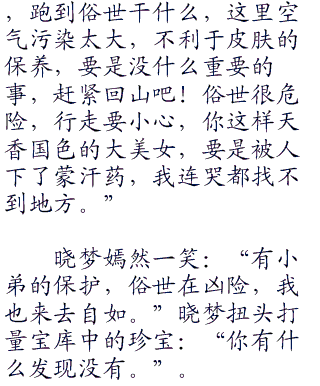 ，跑到俗世干什么，这里空
气污染太大，不利于皮肤的
保养，要是没什么重要的
事，赶紧回山吧！俗世很危
险，行走要小心，你这样天
香国色的大美女，要是被人
下了蒙汗药，我连哭都找不
到地方。”
晓梦嫣然一笑：“有小
弟的保护，俗世在凶险，我
也来去自如。”晓梦扭头打
量宝库中的珍宝：“你有什
么发现没有。”。